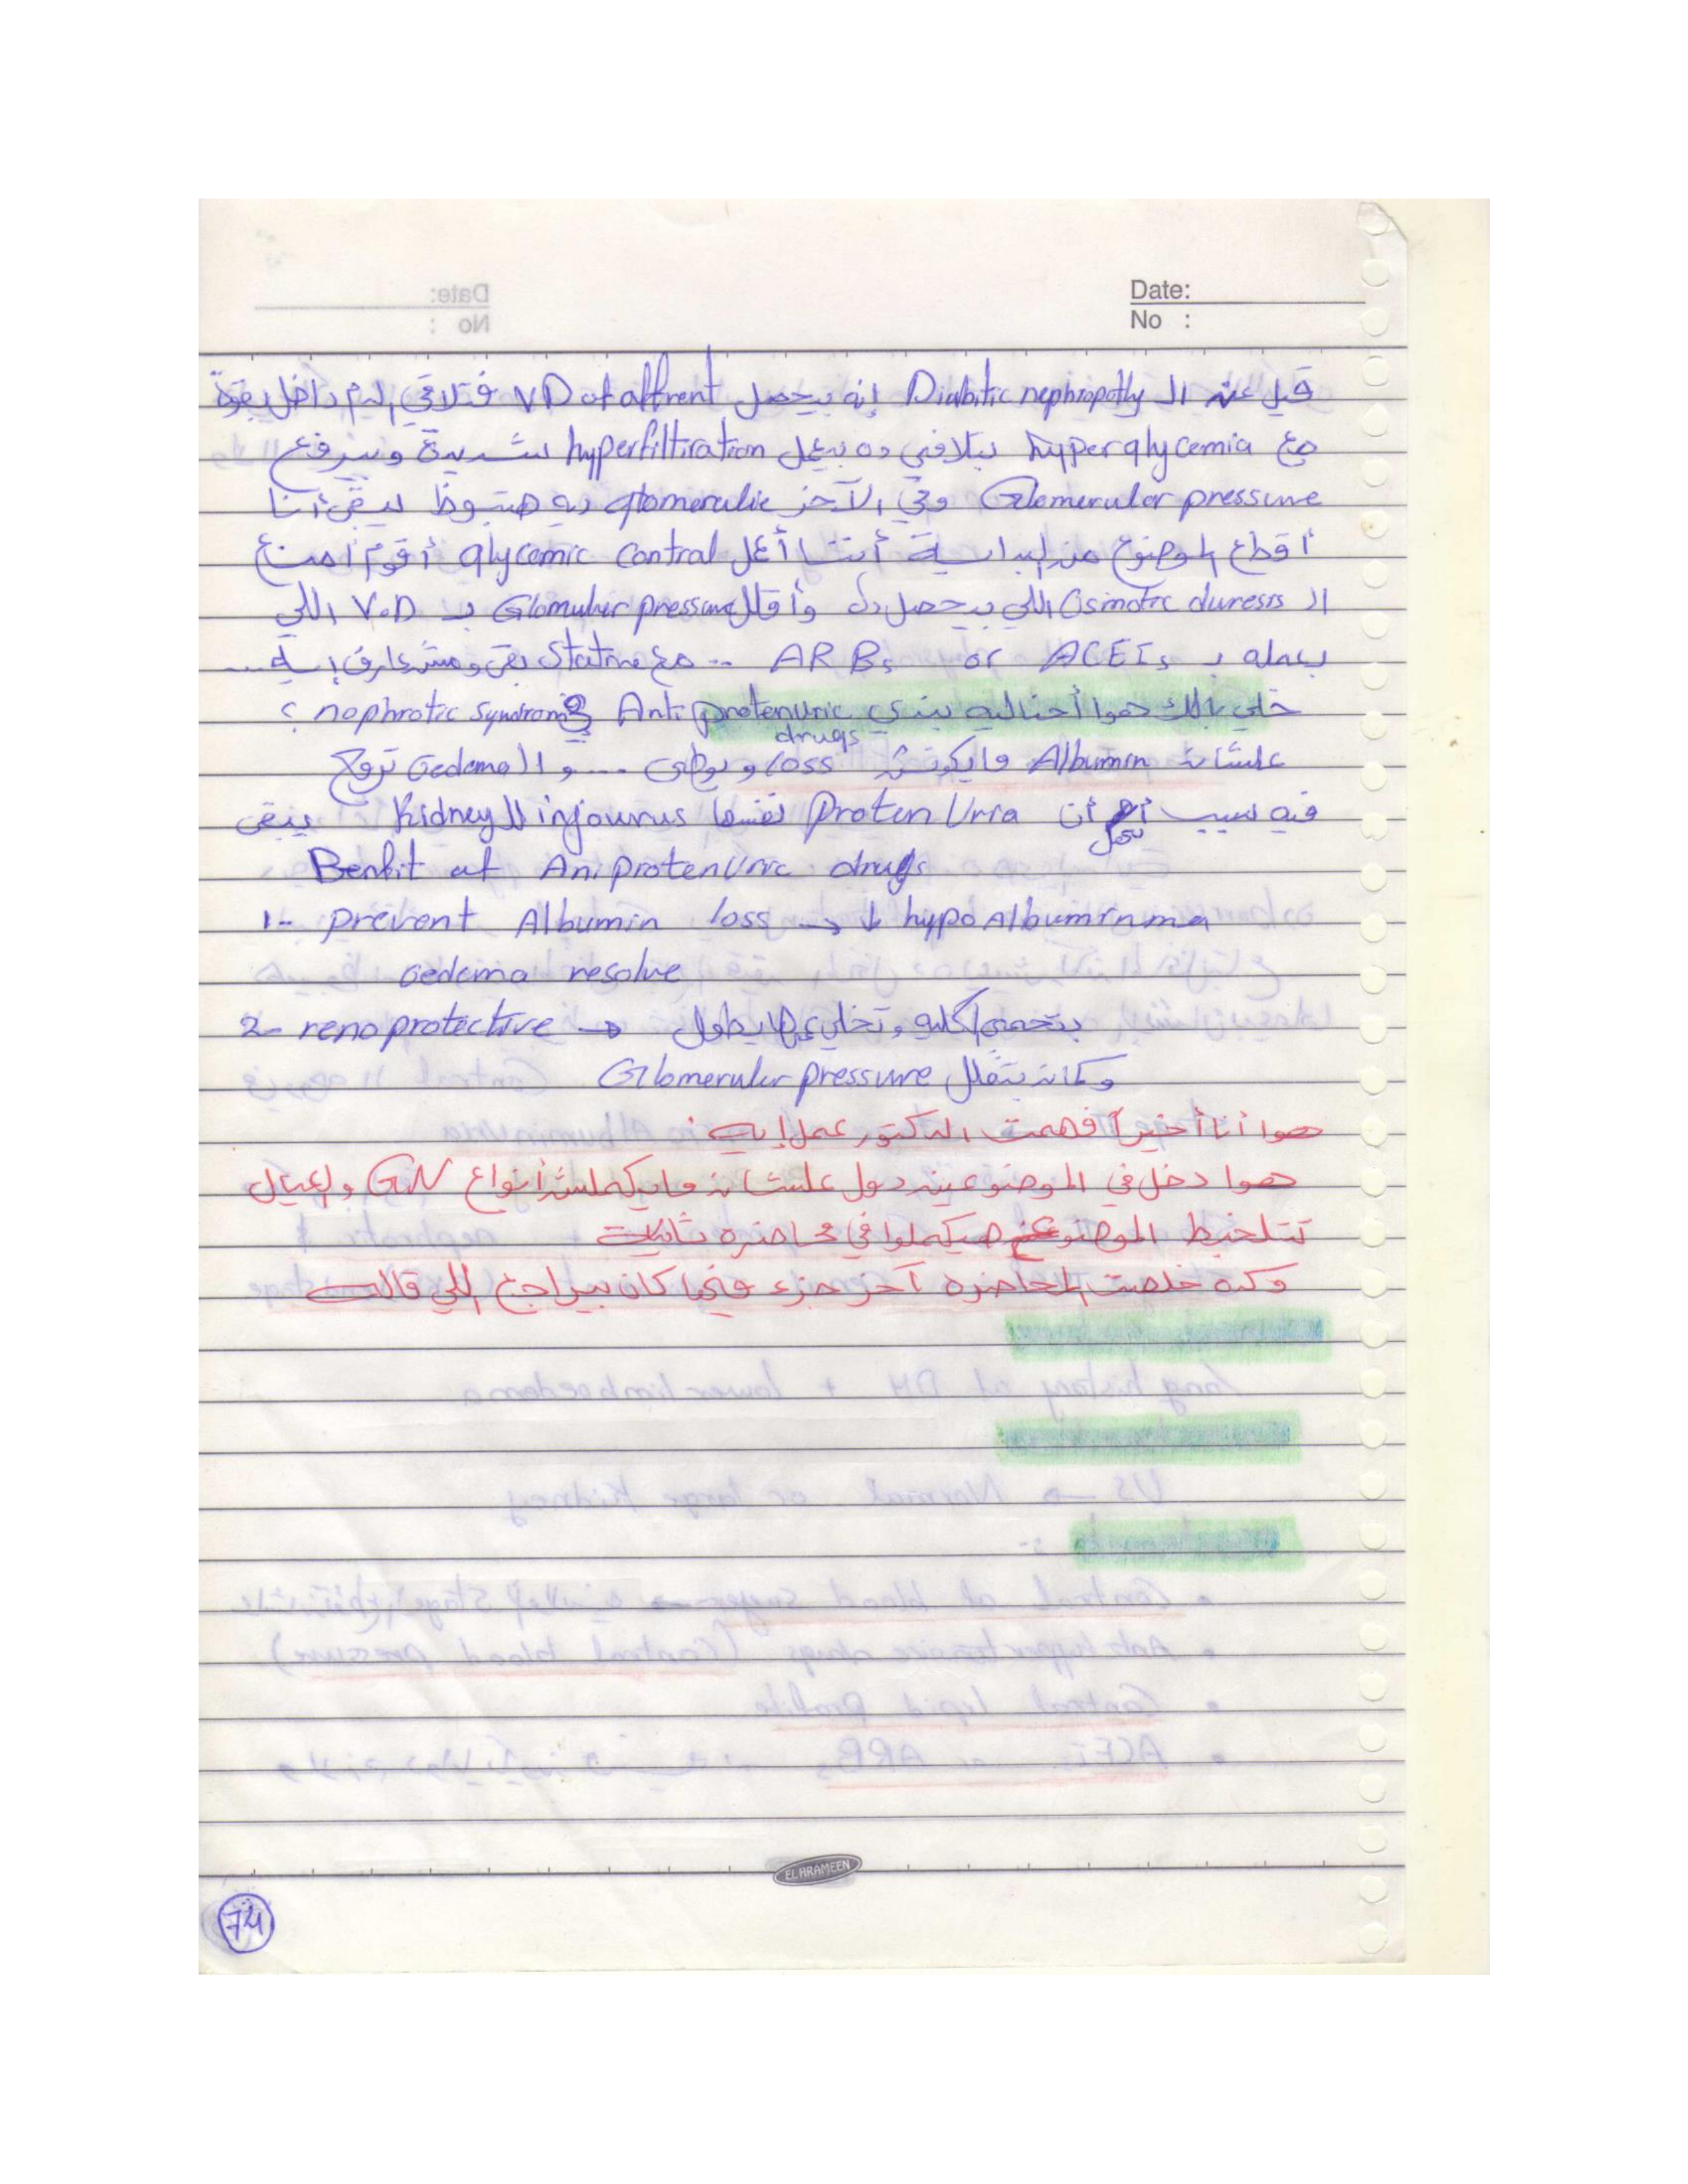 Date:
No :
قيل عن ال Diabitic nephropathy إنه بيحصل VD of affrent فتلاقي الدم داخل بقوة
مع hyperglycemia بتلاقي ده بيعمل hyperfiltiration شديدة وبيرفع
Glomeruler pressure وفي الآخر glomerulie ديه هتبوظ يبقى أنا
أقطع الموضوع من البداية أنا أعمل glycemic control أقوم أمنع
ال Osmotic duresis اللي بيحصل ده وأقلل Glomuler pressure بـ V.D اللي
بعمله بـ ACEIs or ARBs .. مع Statine بقى ومش عارف إيه ...
خلي بالك هموا أحنا ليه بندي Anti protenuric drugs في nophrotic syndrom ؟
علشان Albumin مايكونش loss ويوطى .... و ال Oedema تروح
فيه سبب أهم أن Proten Uria نفسها injourius لل Kidney يبقى
Benfit of Aniprotenuric drugs
1- prevent Albumin loss → ↓ hypoAlbuminmia
oedema resolve
2- renoprotective → بتحمي الكلية وتخلي عمرها يطول
وكمان بتقلل Glomeruler pressure
هوا أنا أخيراً فهمت الدكتور عمل إيه :
هوا دخل في الموضوعين دول علشان مايكملش أنواع GN والعيال
تتلخبط الموضوع هيكملوا في محاضرة تانية
وكده خلصت المحاضرة آخر جزء فيها كان بيراجع اللي قاله
EL ARAMEEN
74